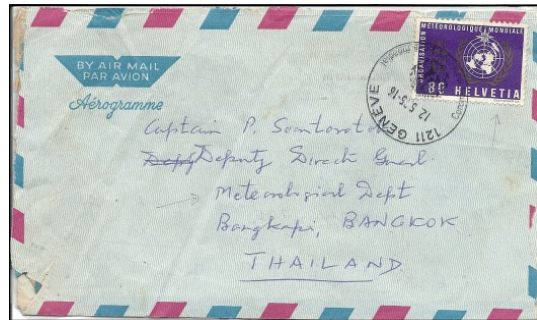 BY AIR MAIL
PAR AVION
Aérogramme
ORGANISATION MÉTÉOROLOGIQUE MONDIALE
80 HELVETIA
1211 GENEVE
Captain P.
Deputy Direct Genl.
Meteorological Dept
Bangkapi, BANGKOK
THAILAND